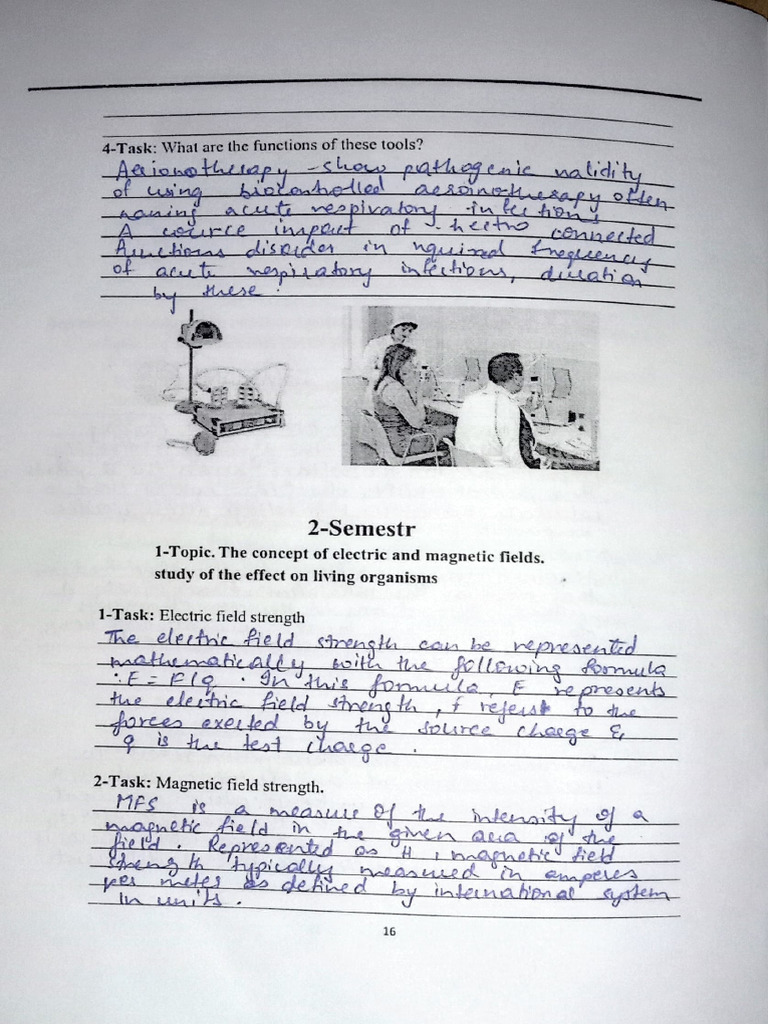 4-Task: What are the functions of these tools?
Aerionotherapy - show pathogenic validity
of using biocontrolled aeroinotherapy often
acute respiratory infections
A cource impact of connected
functions disorder in frequency
of acute respiratory infections, duration
by these.
2-Semestr
1-Topic. The concept of electric and magnetic fields.
study of the effect on living organisms
1-Task: Electric field strength
The electric field strength can be represented
mathematically with the following formula
: E = F/q . In this formula, E represents
the electric field strength, f refers to the
forces exerted by the source charge &
q is the test charge.
2-Task: Magnetic field strength.
MFS is a measure of the intensity of a
magnetic field in the given area of the
field. Represented as H, magnetic field
strength typically measured in amperes
per meter as defined by international system
in units.
16